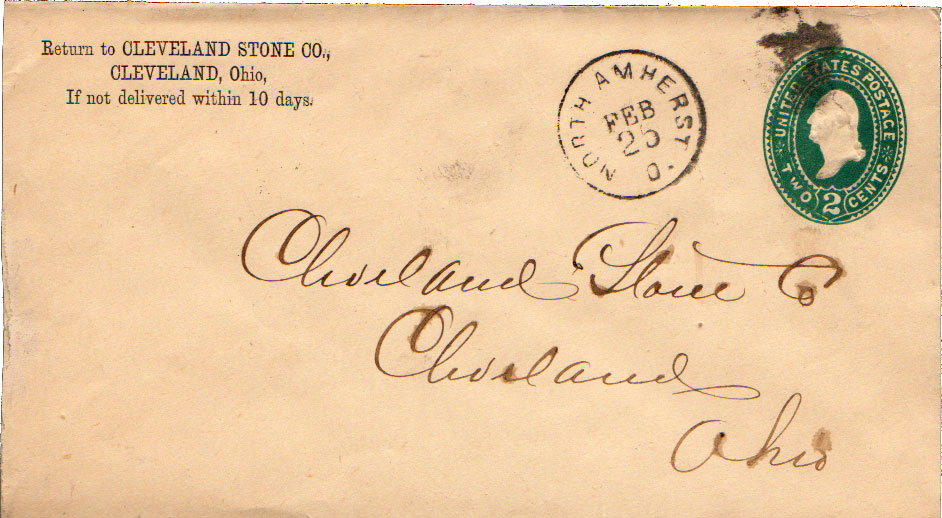 Return to CLEVELAND STONE CO.,
CLEVELAND, Ohio,
If not delivered within 10 days.
NORTH AMHERST O.
FEB
25
UNITED STATES POSTAGE
TWO 2 CENTS
Cleveland Stone Co
Cleveland
Ohio